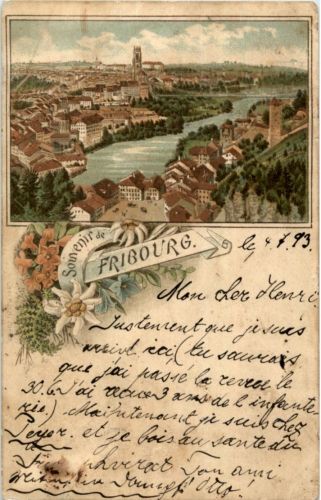 Souvenir de
FRIBOURG.
le 4.7.93.
Mon cher Henri
Justement que je suis
arrivé ici (tu saurais
que j'ai passé la revue le
30.6 J'ai 3 ans de l'infante
rie) Maintenant je suis chez
Peyer. et je bois au santé du
Ton ami
Otto